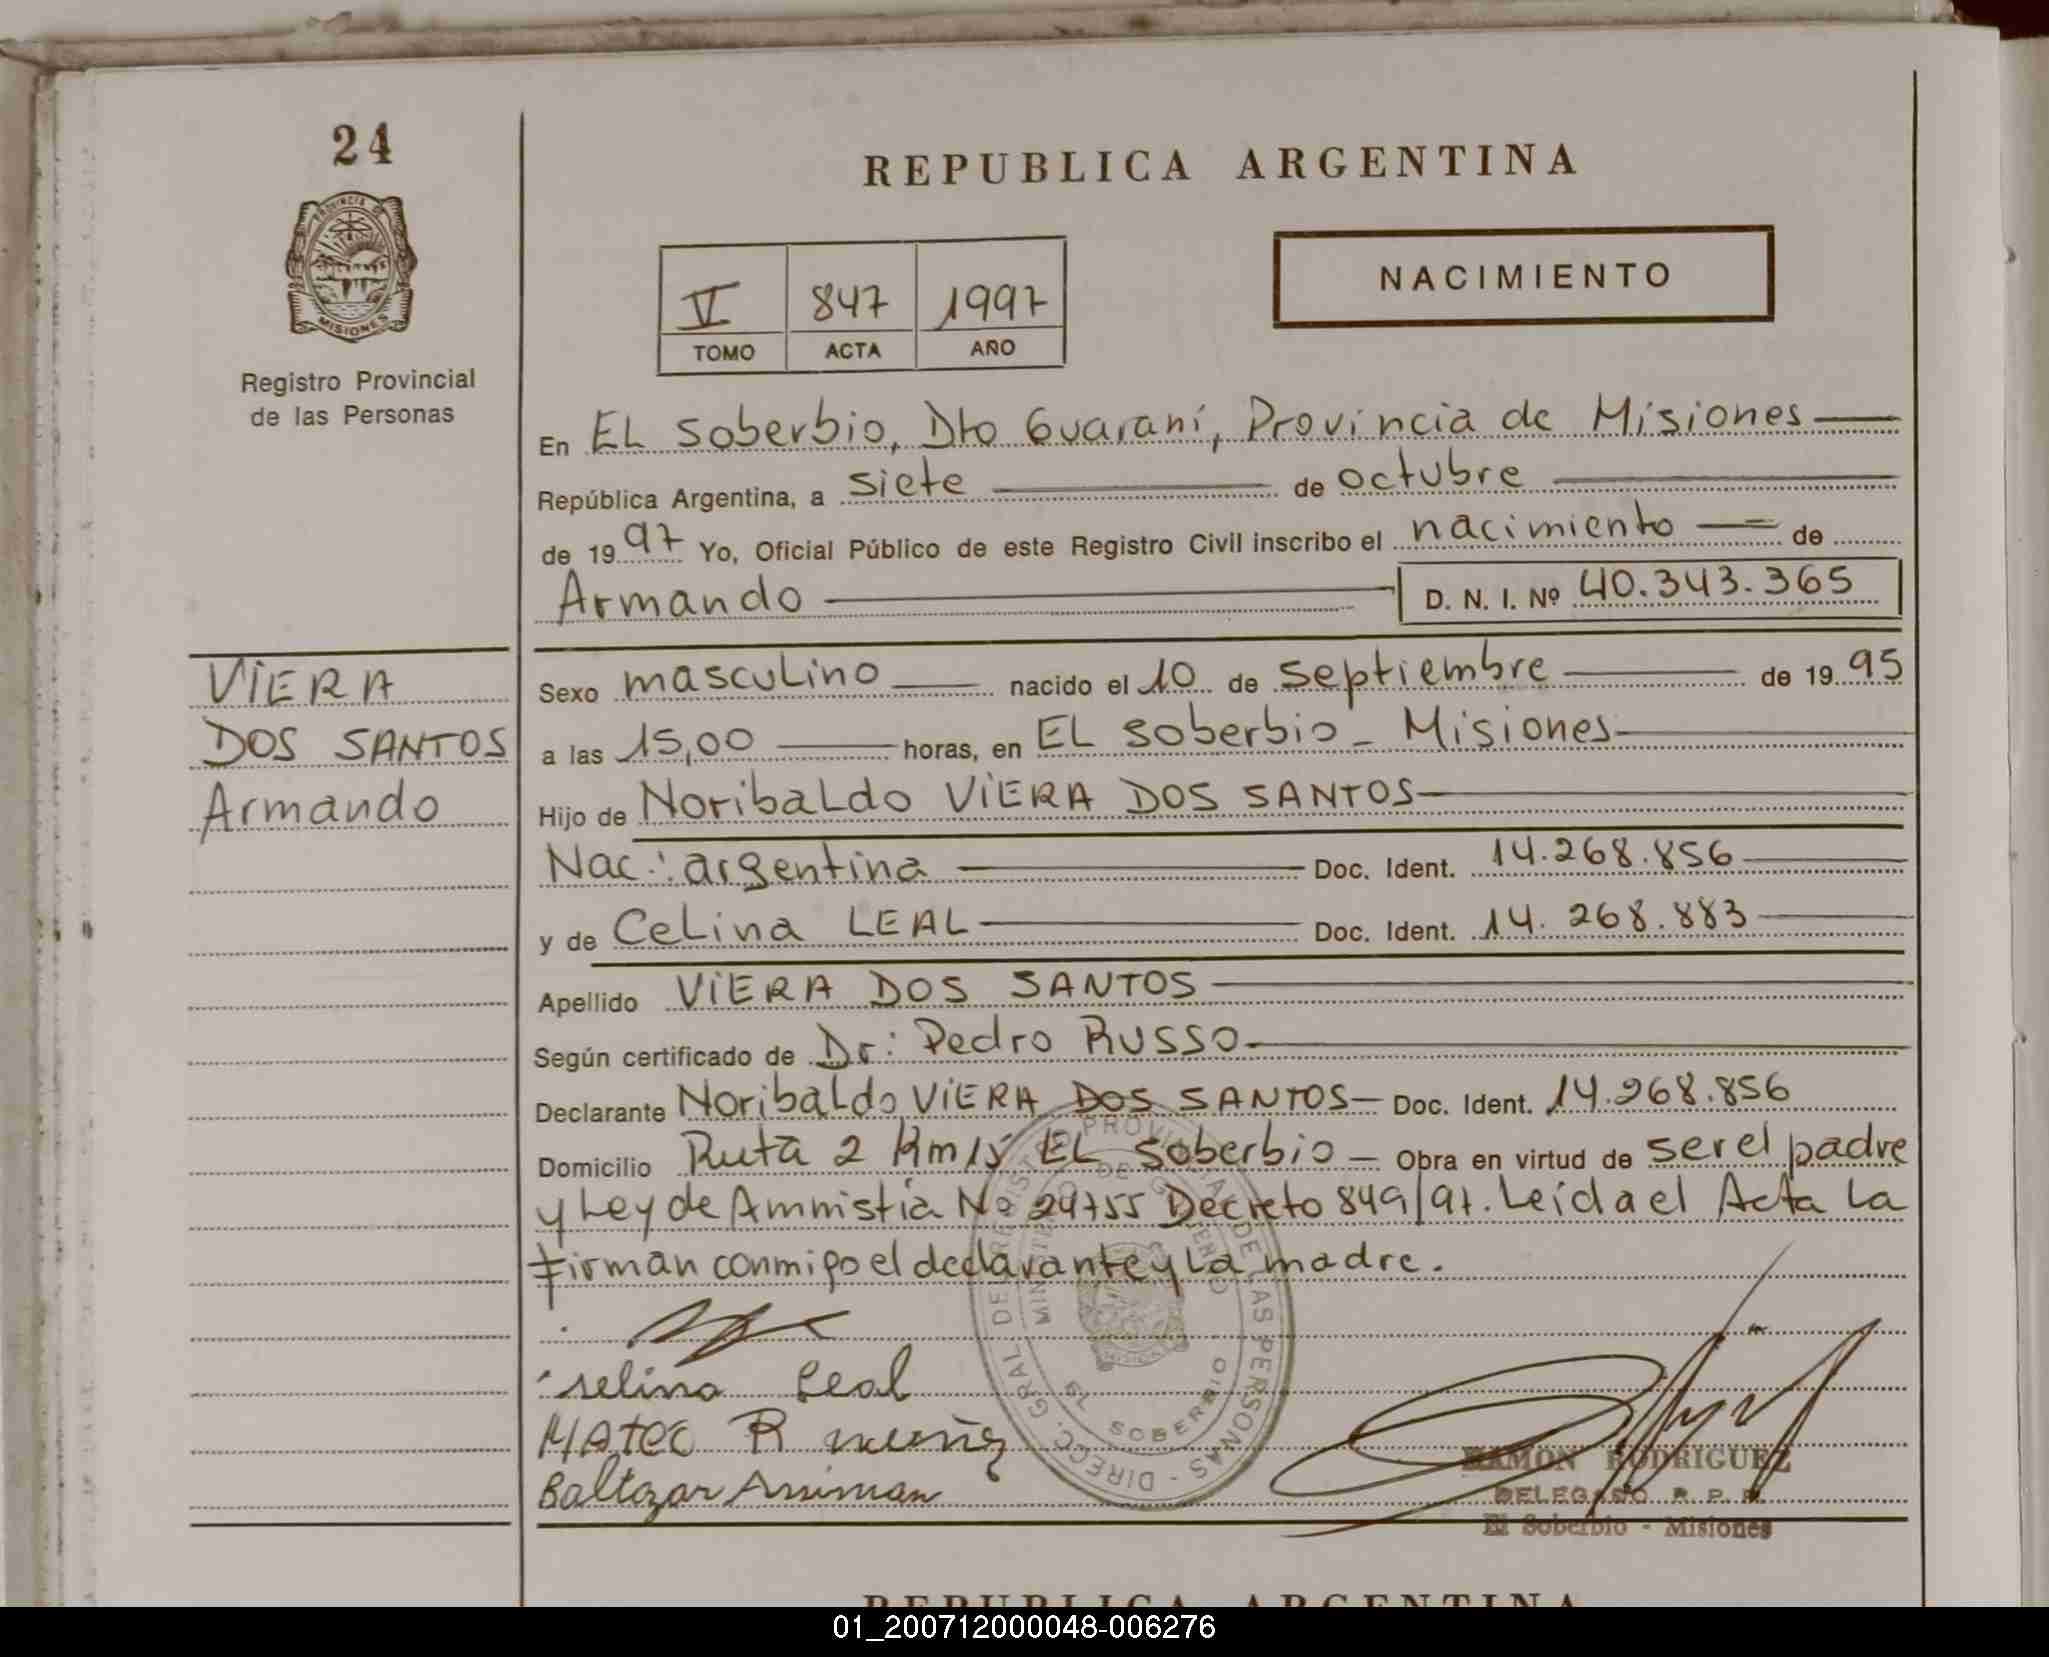 24
REPUBLICA ARGENTINA
PROVINCIA DE
MISIONES
Registro Provincial
de las Personas
V 847 1997
TOMO ACTA AÑO
NACIMIENTO
En EL Soberbio, Dto Guaraní, Provincia de Misiones
República Argentina, a siete de octubre
de 1997 Yo, Oficial Público de este Registro Civil inscribo el nacimiento de
Armando D. N. I. Nº 40.343.365
VIERA
DOS SANTOS
Armando
Sexo masculino nacido el 10 de septiembre de 1995
a las 15,00 horas, en EL Soberbio - Misiones
Hijo de Noribaldo VIERA DOS SANTOS
Nac: argentina Doc. Ident. 14.268.856
y de Celina LEAL Doc. Ident. 14.268.883
Apellido VIERA DOS SANTOS
Según certificado de Dr: Pedro RUSSO
Declarante Noribaldo VIERA DOS SANTOS Doc. Ident. 14.268.856
Domicilio Ruta 2 Km 15 EL Soberbio - Obra en virtud de ser el padre
y Ley de Amnistía Nº 24755 Decreto 849/97. Leída el Acta la
firman conmigo el declarante y la madre.
selina Leal
MATEO R muñez
Baltazar
DIRECC. GRAL DE REGISTRO PROVINCIAL DE LAS PERSONAS
MINISTERIO DE GOBIERNO
EL SOBERBIO
RAMON RODRIGUEZ
DELEGADO R. P. P.
El Soberbio - Misiones
REPUBLICA ARGENTINA
01_200712000048-006276